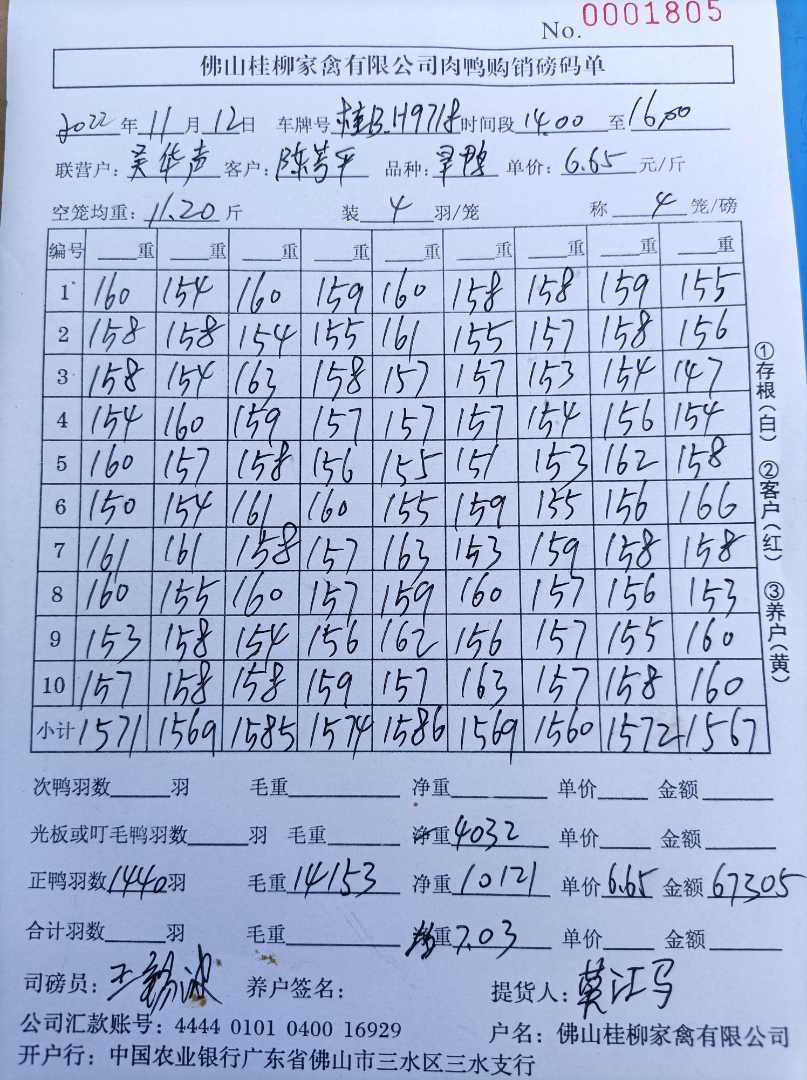 No. 0001805
佛山桂柳家禽有限公司肉鸭购销磅码单
2022年11月12日 车牌号桂B.H9718时间段14.00至16.00
联营户:吴华声 客户:陈芳平 品种:旱鸭 单价:6.65元/斤
空笼均重:11.20斤 装4羽/笼 称4笼/磅
编号 重 重 重 重 重 重 重 重 重
1 160 154 160 159 160 158 158 159 155
2 158 158 154 155 161 155 157 158 156
3 158 154 163 158 157 157 153 154 147
4 154 160 159 157 157 157 154 156 154
5 160 157 158 156 155 151 153 162 158
6 150 154 161 160 155 159 155 156 166
7 161 161 158 157 163 153 159 158 158
8 160 155 160 157 159 160 157 156 153
9 153 158 154 156 162 156 157 155 160
10 157 158 158 159 157 163 157 158 160
小计 1571 1569 1585 1574 1586 1569 1560 1572 1567
①存根(白) ②客户(红) ③养户(黄)
次鸭羽数 羽 毛重 净重 单价 金额
光板或叮毛鸭羽数 羽 毛重 净重4032 单价 金额
正鸭羽数1440羽 毛重14153 净重10121 单价6.65 金额67305
合计羽数 羽 毛重 重7.03 单价 金额
司磅员: 养户签名: 提货人:莫江马
公司汇款账号:4444 0101 0400 16929 户名:佛山桂柳家禽有限公司
开户行:中国农业银行广东省佛山市三水区三水支行